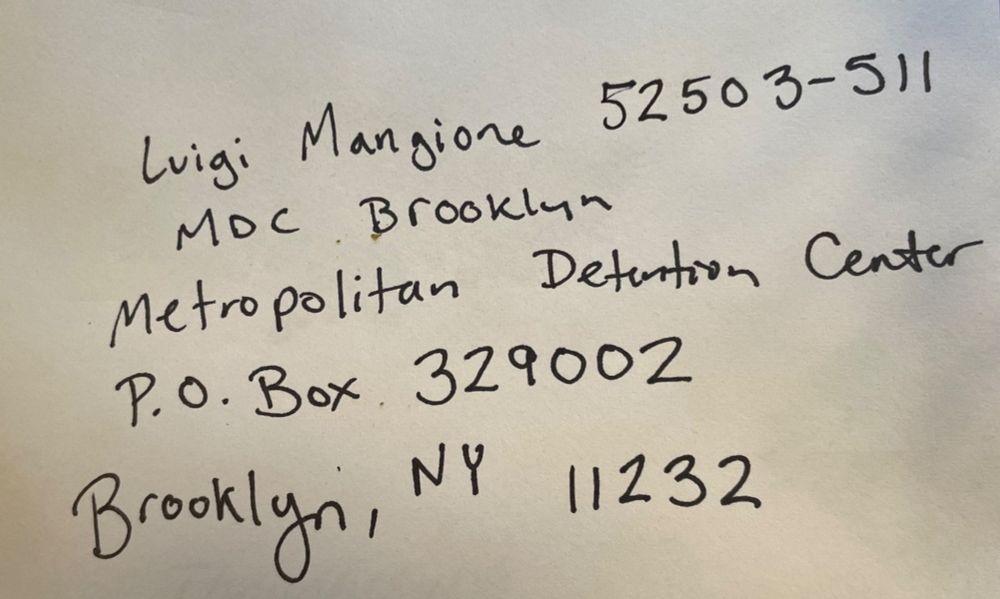 Luigi Mangione 52503-511
MDC Brooklyn
Metropolitan Detention Center
P.O. Box 329002
Brooklyn, NY 11232